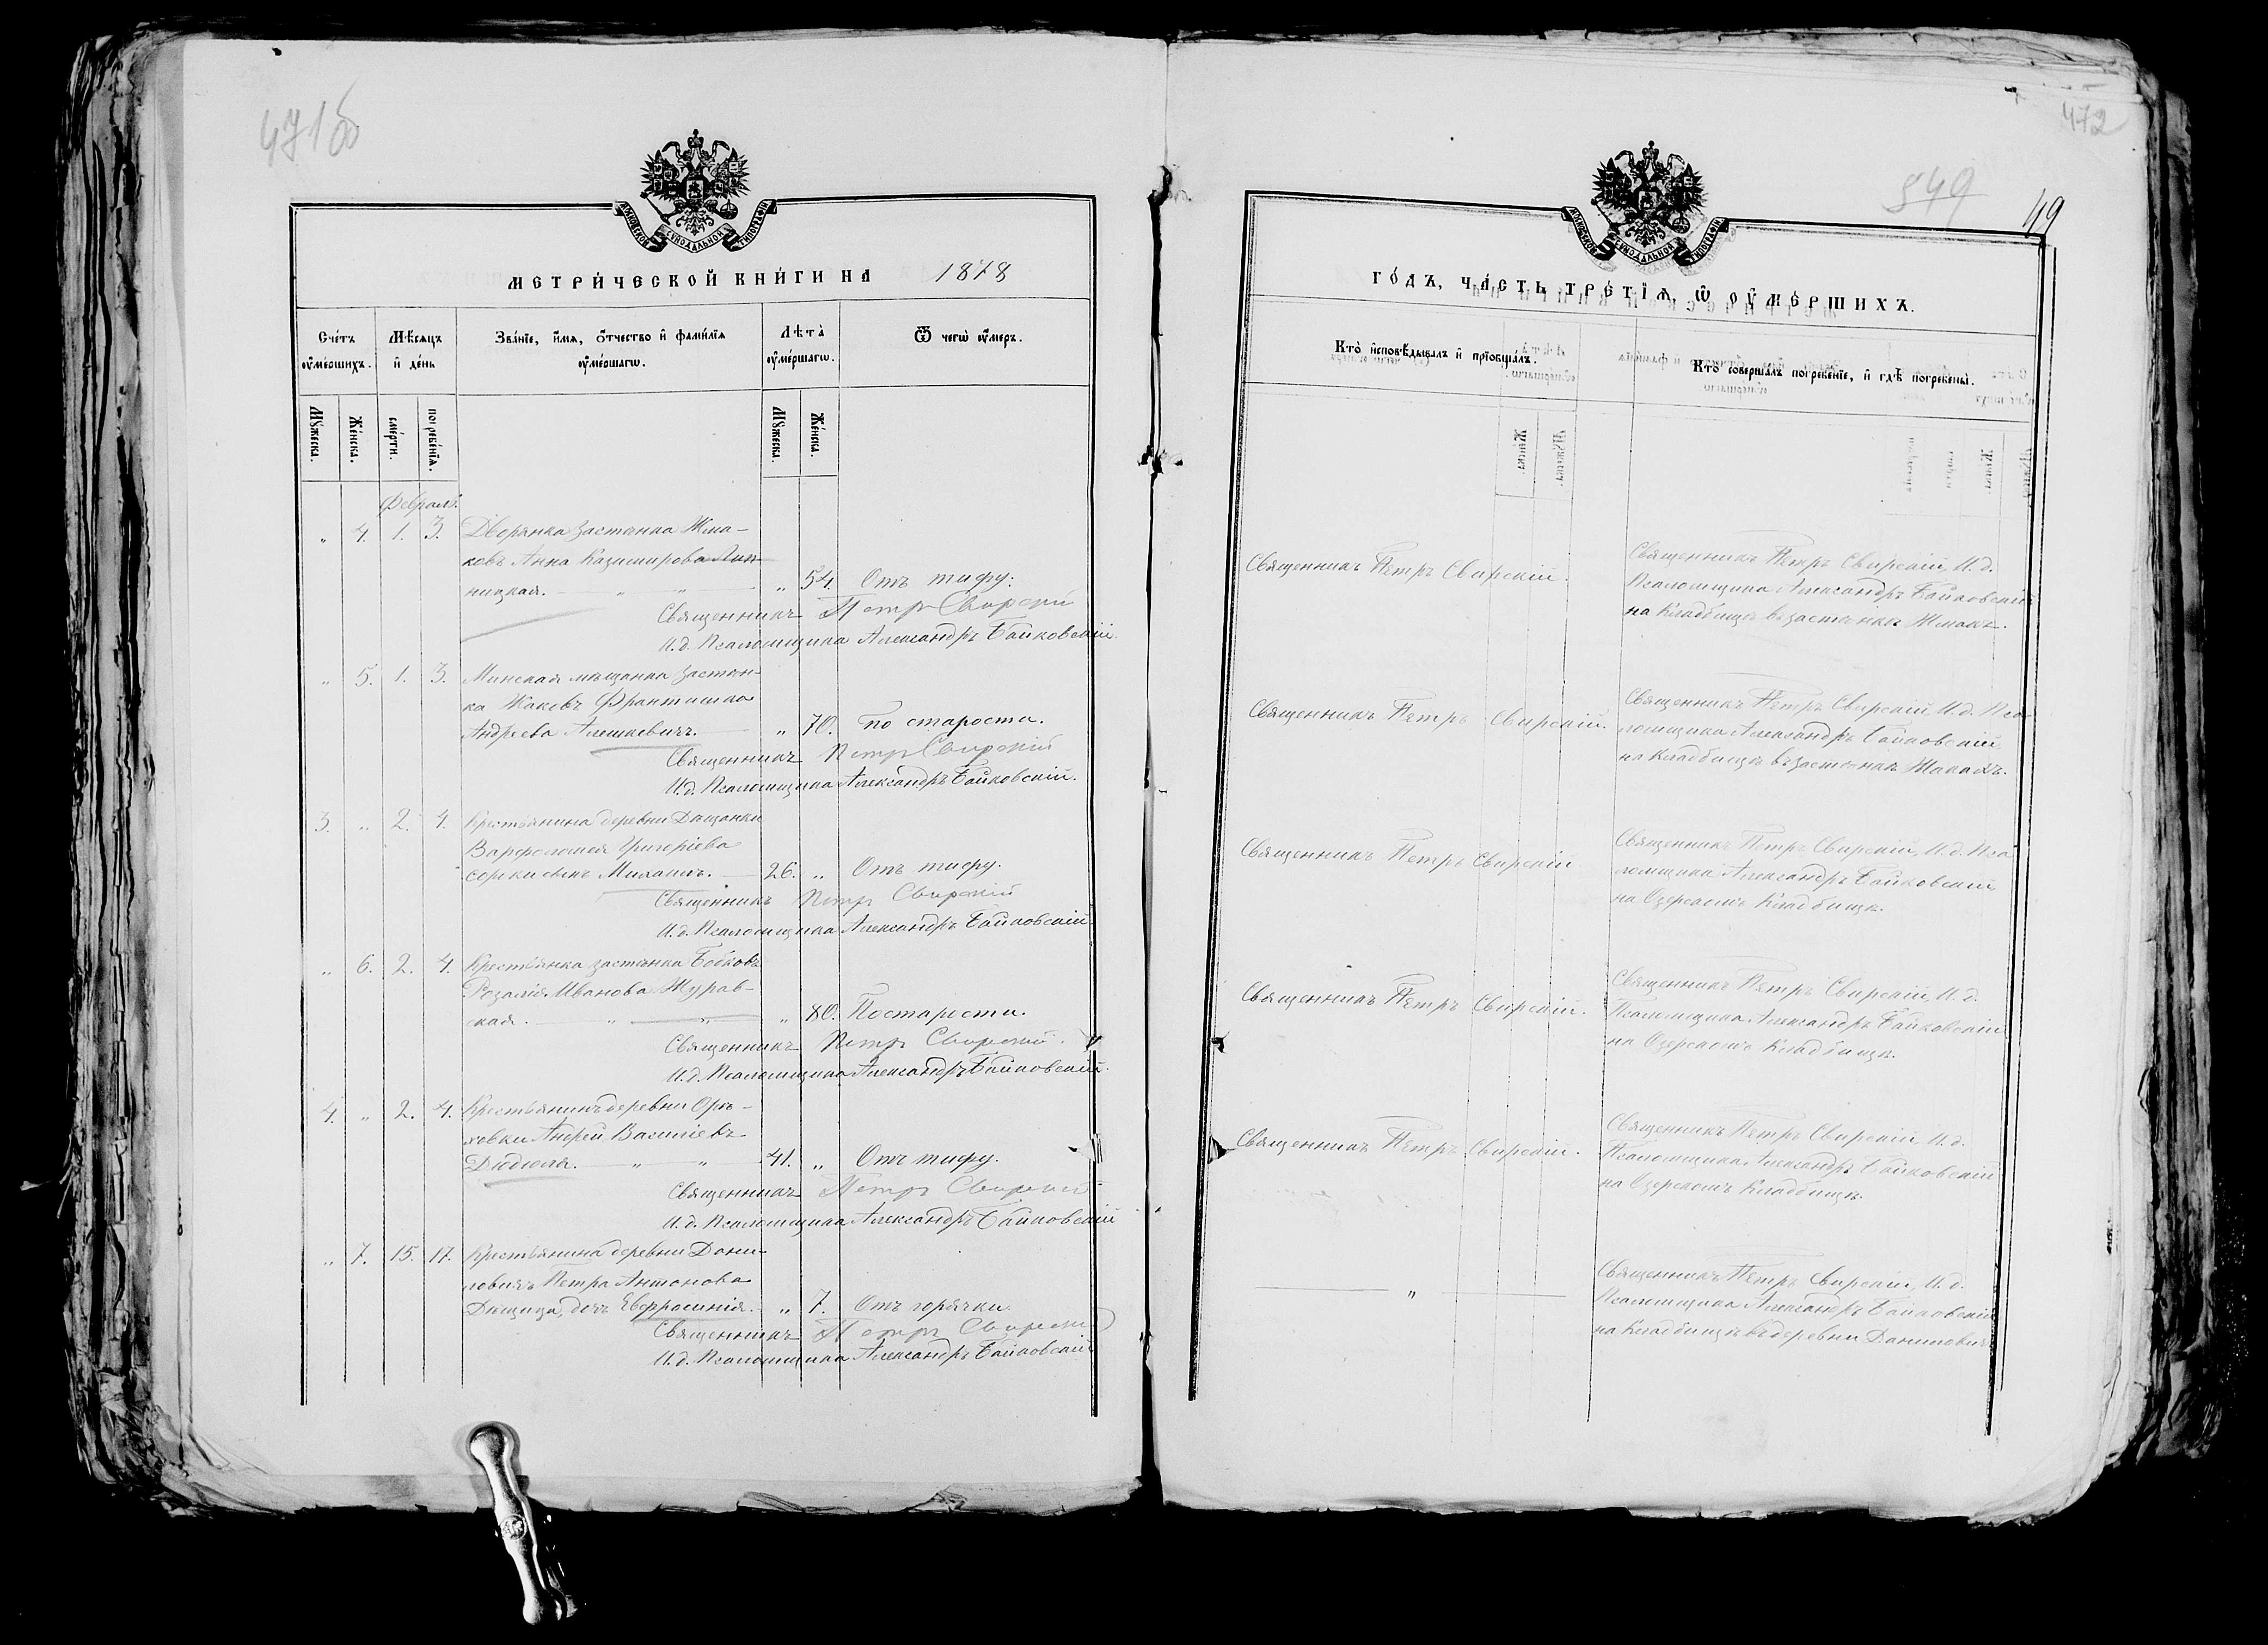 471б
МОСКОВСКОЙ СУНОДАЛЬНОЙ ТИПОГРАФІИ
МЕТРИ́ЧЕСКОЙ КНИ́ГИ НА 1878
Сче́тъ оу҆ме́ршихъ.
Мѣ́сяцъ и҆ де́нь
Зва́нїе, и҆́мя, ѻ҆́тчество и҆ фами́лїя оу҆ме́ршагѡ.
Лѣ́та оу҆ме́ршагѡ.
Ѿ чегѡ̀ оу҆́меръ.
Мꙋ́жеска.
Же́нска.
сме́рти.
погребе́нїя.
Мꙋ́жеска.
Же́нска.
Февраль.
„ 4. 1. 3. Дворянка застѣнка Жма-
ковъ Анна Казимирова Лип-
ницкая. „ „ „ 54. Отъ тифу.
Священникъ Петръ Свирскій
И.д. Псаломщика Александръ Байковскій.
„ 5. 1. 3. Минская мѣщанка застѣн-
ка Жаковъ Франтишка
Андреева Алешкевичъ. „ 70. По старости.
Священникъ Петръ Свирскій
И.д. Псаломщика Александръ Байковскій.
3. „ 2. 4. Крестьянина деревни Дащанки
Варфоломея Григоріева
Сорки сынъ Михаилъ. 26. „ Отъ тифу.
Священникъ Петръ Свирскій
И.д. Псаломщика Александръ Байковскій
„ 6. 2. 4. Крестьянка застѣнка Бобковъ
Розалія Иванова Журав-
ская. „ „ „ 80. По старости.
Священникъ Петръ Свирскій.
И.д. Псаломщика Александръ Байковскій.
4. „ 2. 4. Крестьянинъ деревни Орѣ-
ховки Андрей Василіевъ
Дидюля. „ „ 41. „ Отъ тифу.
Священникъ Петръ Свирскій
И.д. Псаломщика Александръ Байковскій
„ 7. 15. 17. Крестьянина деревни Дани-
ловичъ Петра Антонова
Дащица, дочь Евфросинія. „ 7. Отъ горячки.
Священникъ Петръ Свирскій
И.д. Псаломщика Александръ Байковскій
472
849
49
МОСКОВСКОЙ СУНОДАЛЬНОЙ ТИПОГРАФІИ
ГО́ДЪ, ЧА́СТЬ ТРЕ́ТЇЯ, Ѡ҆ ОУ҆МЕ́РШИХЪ.
Кто̀ и҆сповѣ́дывалъ и҆ прїѻбща́лъ.
Кто̀ соверша́лъ погребе́нїе, и҆ гдѣ̀ погребены̀.
Священникъ Петръ Свирскій.
Священникъ Петръ Свирскій, И.д.
Псаломщика Александръ Байковскій
на Кладбищѣ въ застѣнкѣ Жмакъ.
Священникъ Петръ Свирскій.
Священникъ Петръ Свирскій, И.д. Пса-
ломщика Александръ Байковскій
на Кладбищѣ въ застѣнкѣ Жакахъ.
Священникъ Петръ Свирскій
Священникъ Петръ Свирскій, И.д. Пса-
ломщика Александръ Байковскій
на Озерскомъ Кладбищѣ.
Священникъ Петръ Свирскій.
Священникъ Петръ Свирскій, И.д.
Псаломщика Александръ Байковскій
на Озерскомъ Кладбищѣ.
Священникъ Петръ Свирскій.
Священникъ Петръ Свирскій, И.д.
Псаломщика Александръ Байковскій
на Озерскомъ Кладбищѣ.
„
Священникъ Петръ Свирскій, И.д.
Псаломщика Александръ Байковскій
на Кладбищѣ въ деревни Даниловичъ